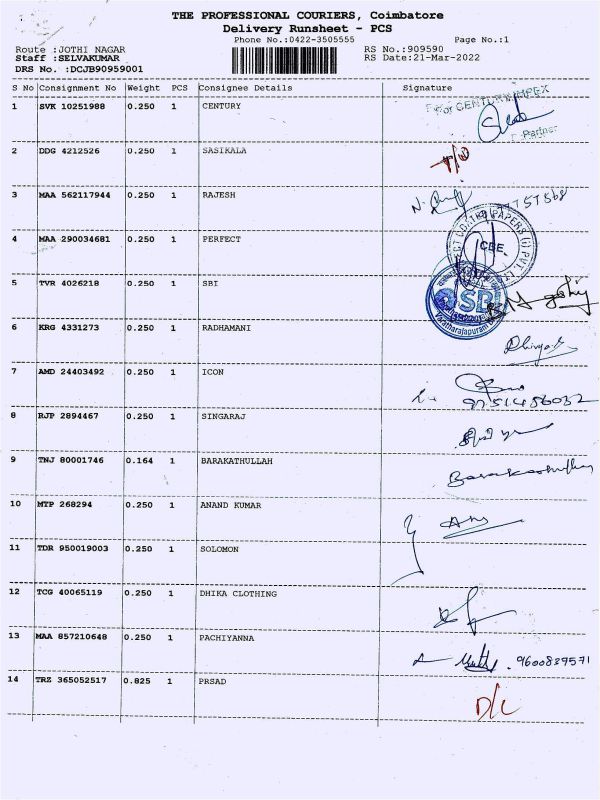 THE PROFESSIONAL COURIERS, Coimbatore
Delivery Runsheet - PCS
Phone No.:0422-3505555 Page No.:1
Route :JOTHI NAGAR RS No.:909590
Staff :SELVAKUMAR RS Date:21-Mar-2022
DRS No. :DCJB90959001
S No Consignment No Weight PCS Consignee Details Signature
1 SVK 10251988 0.250 1 CENTURY
For CENTURY IMPEX
Partner
2 DDG 4212526 0.250 1 SASIKALA
3 MAA 562117944 0.250 1 RAJESH
4 MAA 290034681 0.250 1 PERFECT
CBE.
5 TVR 4026218 0.250 1 SBI
SBI
6 KRG 4331273 0.250 1 RADHAMANI
7 AMD 24403492 0.250 1 ICON
9751456032
8 RJP 2894467 0.250 1 SINGARAJ
9 TNJ 80001746 0.164 1 BARAKATHULLAH
10 MTP 268294 0.250 1 ANAND KUMAR
11 TDR 950019003 0.250 1 SOLOMON
12 TCG 40065119 0.250 1 DHIKA CLOTHING
13 MAA 857210648 0.250 1 PACHIYANNA
9600839571
14 TRZ 365052517 0.825 1 PRSAD
D/L